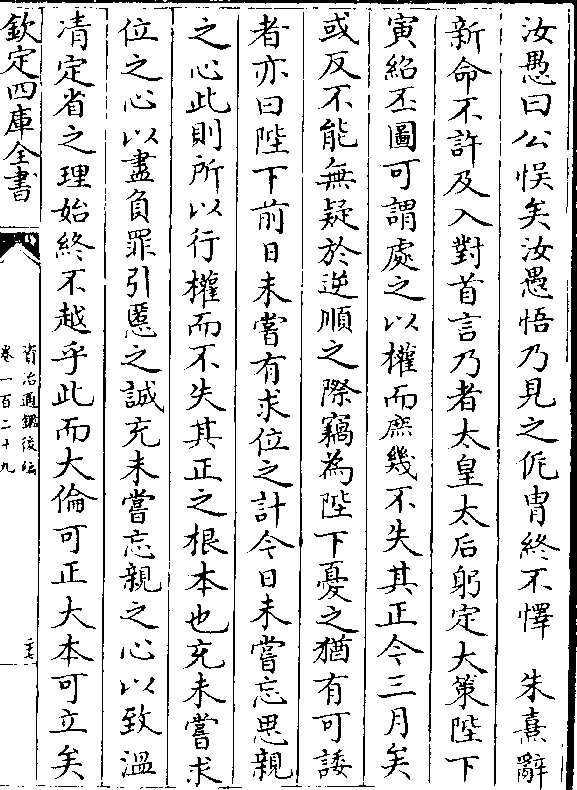 汝愚曰公悞矣汝愚悟乃見之侂胄終不懌　朱熹辭
新命不許及入對首言乃者太皇太后躬定大策陛下
寅紹丕圖可謂處之以權而庶幾不失其正今三月矣
或反不能無疑於逆順之際竊為陛下憂之猶有可諉
者亦曰陛下前日未嘗有求位之計今日未嘗忘思親
之心此則所以行權而不失其正之根本也充未嘗求
位之心以盡負罪引慝之誠充未嘗忘親之心以致溫
凊定省之理始終不越乎此而大倫可正大本可立矣
欽定四庫全書
資治通鑑後編
卷一百二十九